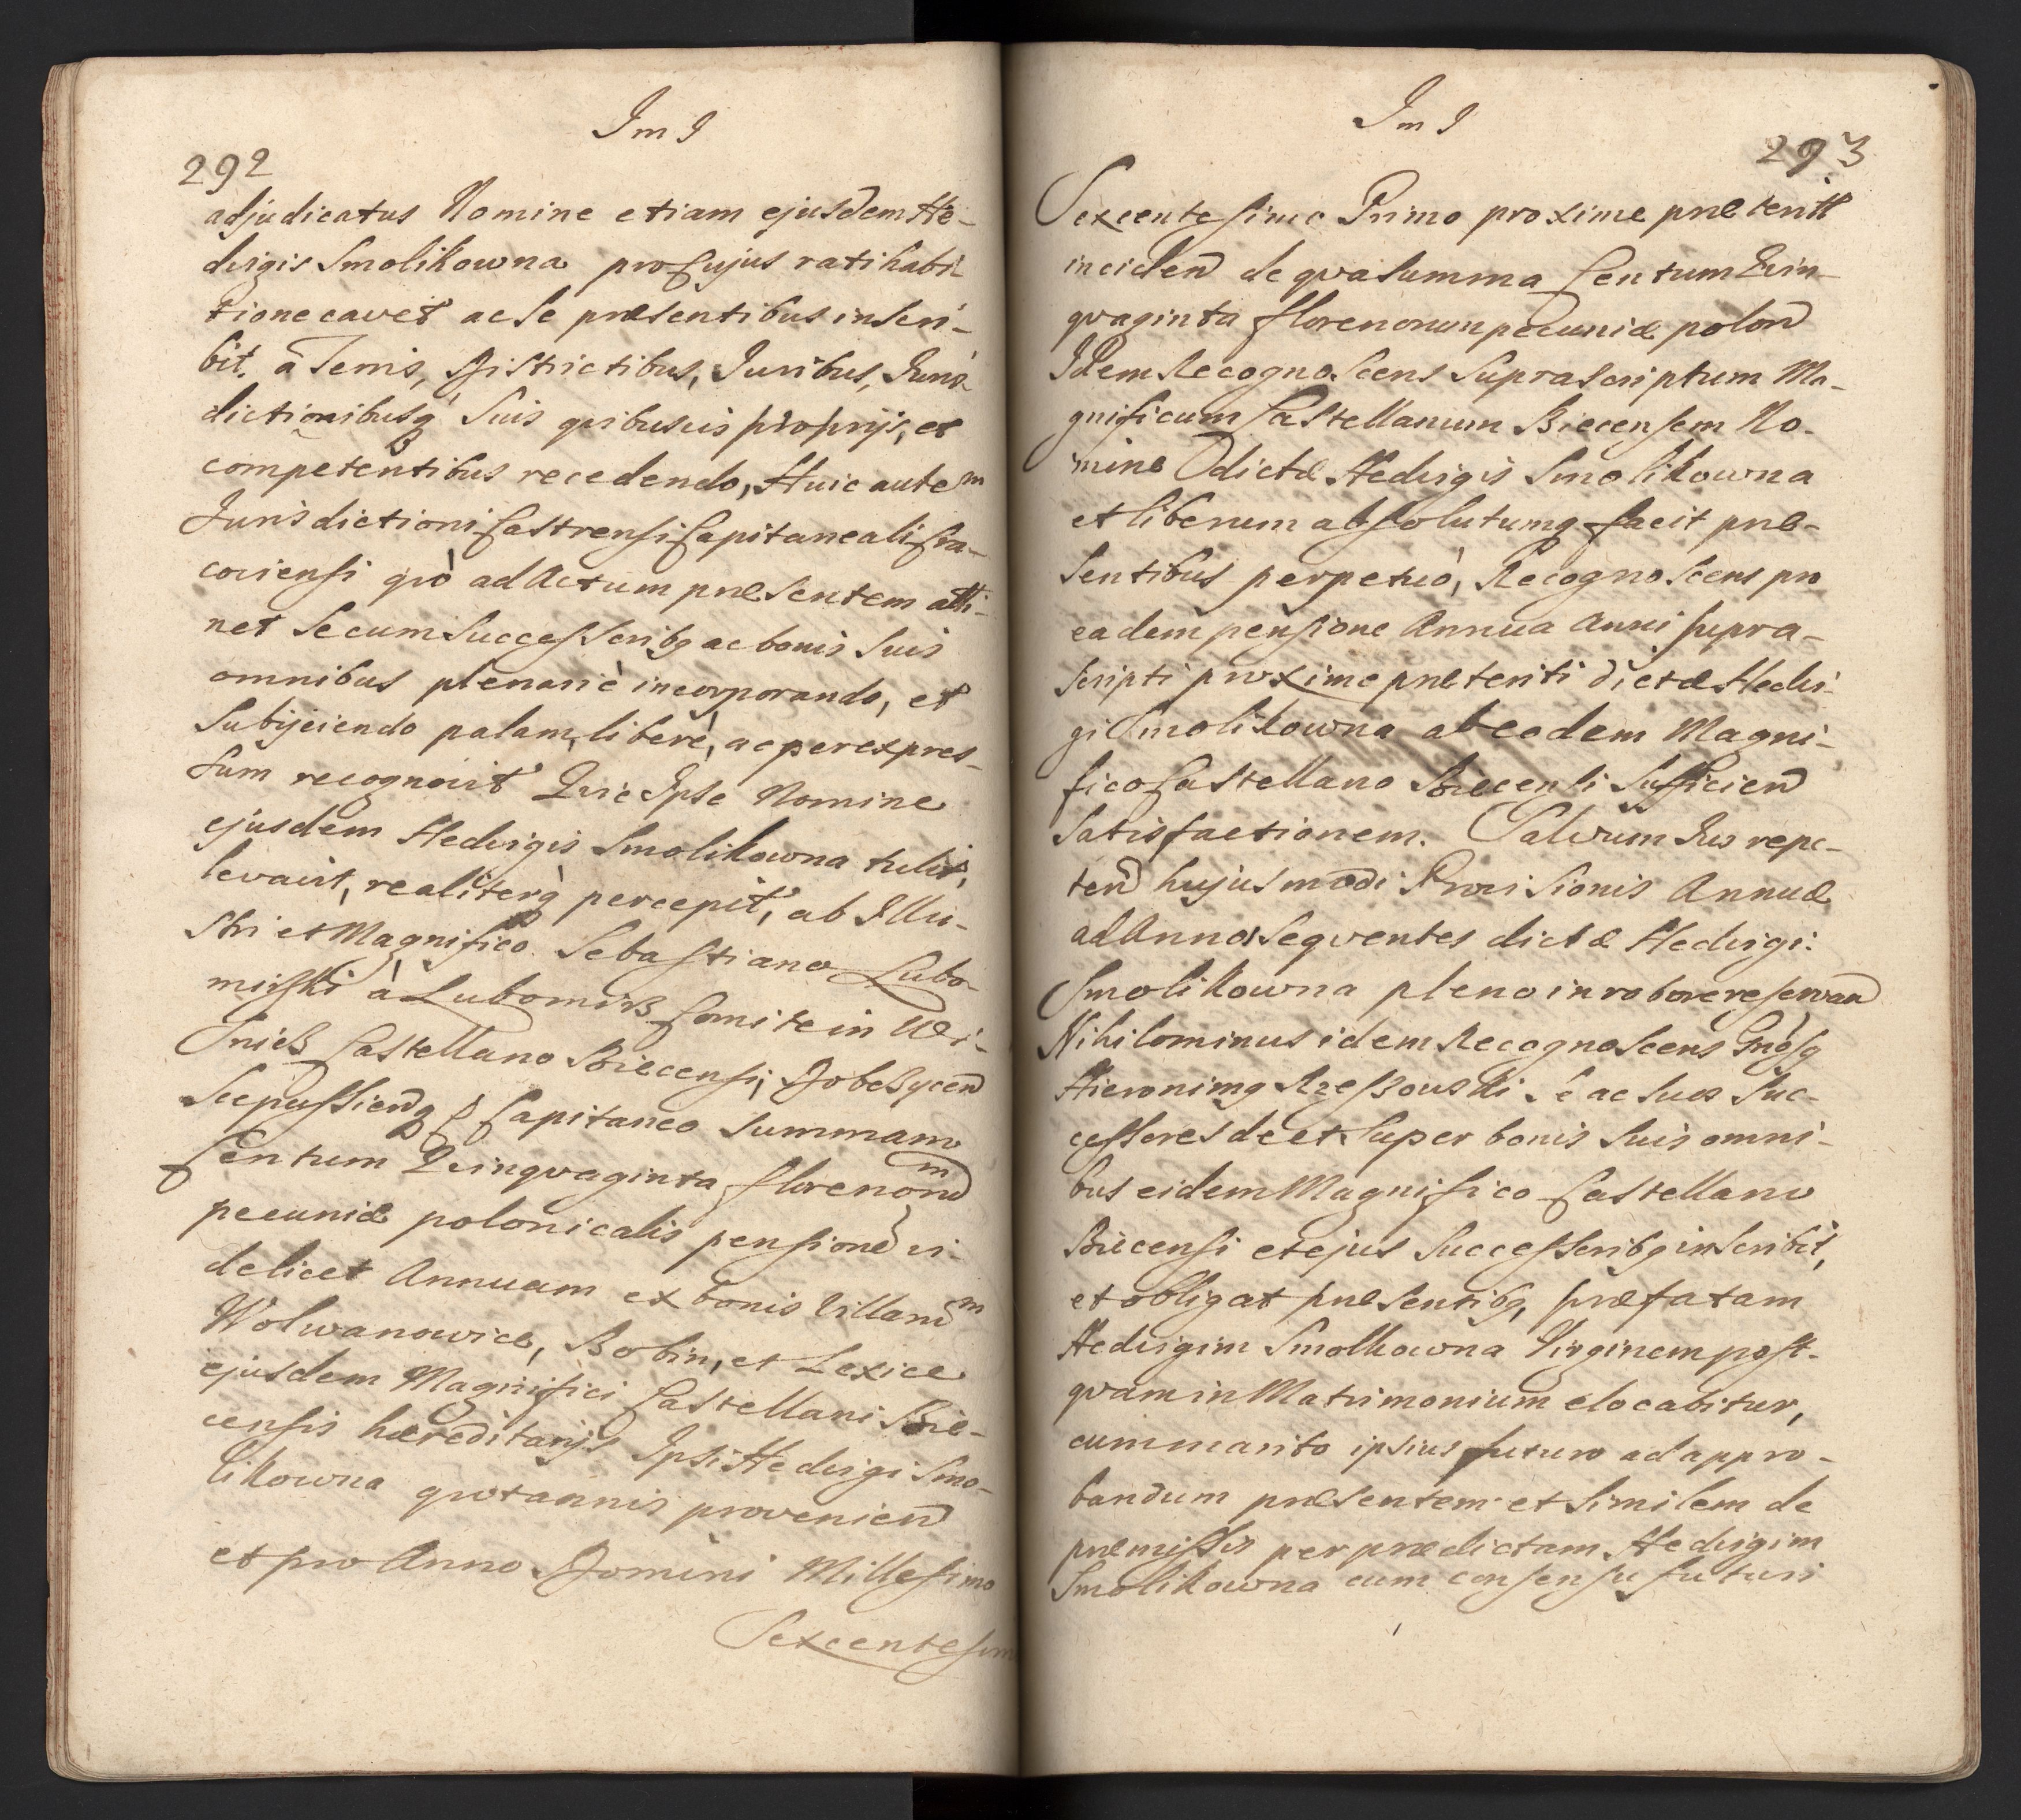 I m I
292
adjudicatus Nomine etiam ejusdem He-
dvigis Smolikowna pro Cujus ratihabi-
tione cavet ac se præsentibus inscri-
bit. à Terris, Districtibus, Juribus, Juris-
dictionibusq suis quibusvis proprijs, et
competentibus recedendo, Huic autem
Jurisdictioni Castrensi Capitaneali Cra-
coviensi qvò ad Actum præsentem atti-
net se cum Successoribq ac bonis suis
omnibus plenariè incorporando, et
subijciendo palam, liberè, ac per expres-
sum recognovit Quic Ipse Nomine
ejusdem Hedvigis Smolikowna tulit,
levavit, realiterq percepit, ab Illu-
stri et Magnifico Sebastiano Lubo-
mirski à Lubomirz Comite in Wi-
snicz Castellano Biecensi, Dobczycen
Scepussienq Capitaneo summam
Centum Quinqvaginta florenorum
pecuniæ polonicalis pensione vi-
delicet Annuam ex bonis Villarum
Wolwanowice, Bobin, et Lexice
ejusdem Magnifici Castellani Bie-
censis hæreditarijs Ipsi Hedvigi Smo-
likowna qvotannis provenien
et pro Anno Domini Millesimo
Sexcentesimo
I m I
293
Sexcentesimo Primo proxime præterit
inciden de qva summa Centum Quin-
qvaginta florenorum pecuniæ polon
Idem Recognoscens suprascriptum Ma-
gnificum Castellanum Biecensem No-
mine dictæ Hedvigis Smolikowna
et liberum absolutumq facit præ-
sentibus perpetuò, Recognoscens pro
eadem pensione Annua Anni supra-
scripti proxime præteriti dictæ Hedvi-
gi Smolikowna ab eodem Magni-
fico Castellano Biecensi sufficien
satisfactionem. Salvum Jus repe-
ten hujusmodi Provisionis Annuæ
ad Annos seqventes dictæ Hedvigi
Smolikowna pleno in robore reservan
Nihilominus idem Recognoscens Gnosq
Hieronimq Rzeszowski se ac suos suc-
cessores de et super bonis suis omni-
bus eidem Magnifico Castellano
Biecensi et ejus Successoribq inscribit,
et obligat præsentibq, præfatam
Hedvigim Smolkowna Virginem post-
qvam in Matrimonium elocabitur,
cum marito ipsius futuro ad appro-
bandum præsentem et similem de
præmissis per prædictam Hedvigim
Smolikowna cum consensu futuri